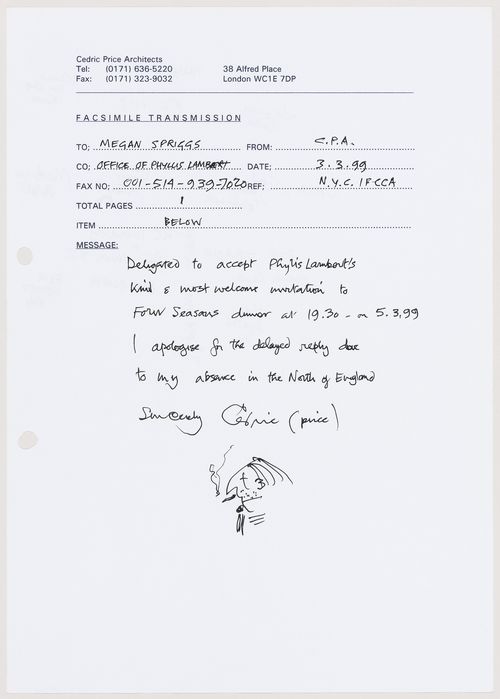 Cedric Price Architects
Tel: (0171) 636-5220 38 Alfred Place
Fax: (0171) 323-9032 London WC1E 7DP
FACSIMILE TRANSMISSION
TO; MEGAN SPRIGGS FROM: C.P.A.
CO; OFFICE OF PHYLLIS LAMBERT DATE; 3.3.99
FAX NO; 001-514-939-7020 REF; N.Y.C. IFCCA
TOTAL PAGES 1
ITEM BELOW
MESSAGE:
Delighted to accept Phyllis Lambert's
Kind & most welcome invitation to
Four Seasons dinner at 19.30 - on 5.3.99
I apologise for the delayed reply due
to my absence in the North of England
Sincerely Cedric (price)